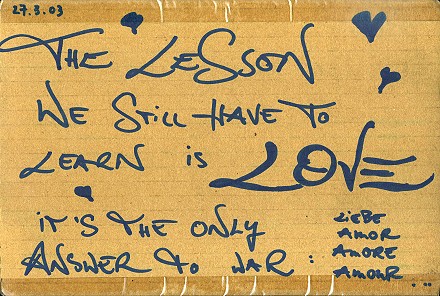 27.3.03
THE LESSON
WE STILL HAVE TO
LEARN is LOVE
iT'S THE ONLY
ANSWER TO WAR :
LIEBE
AMOR
AMORE
AMOUR